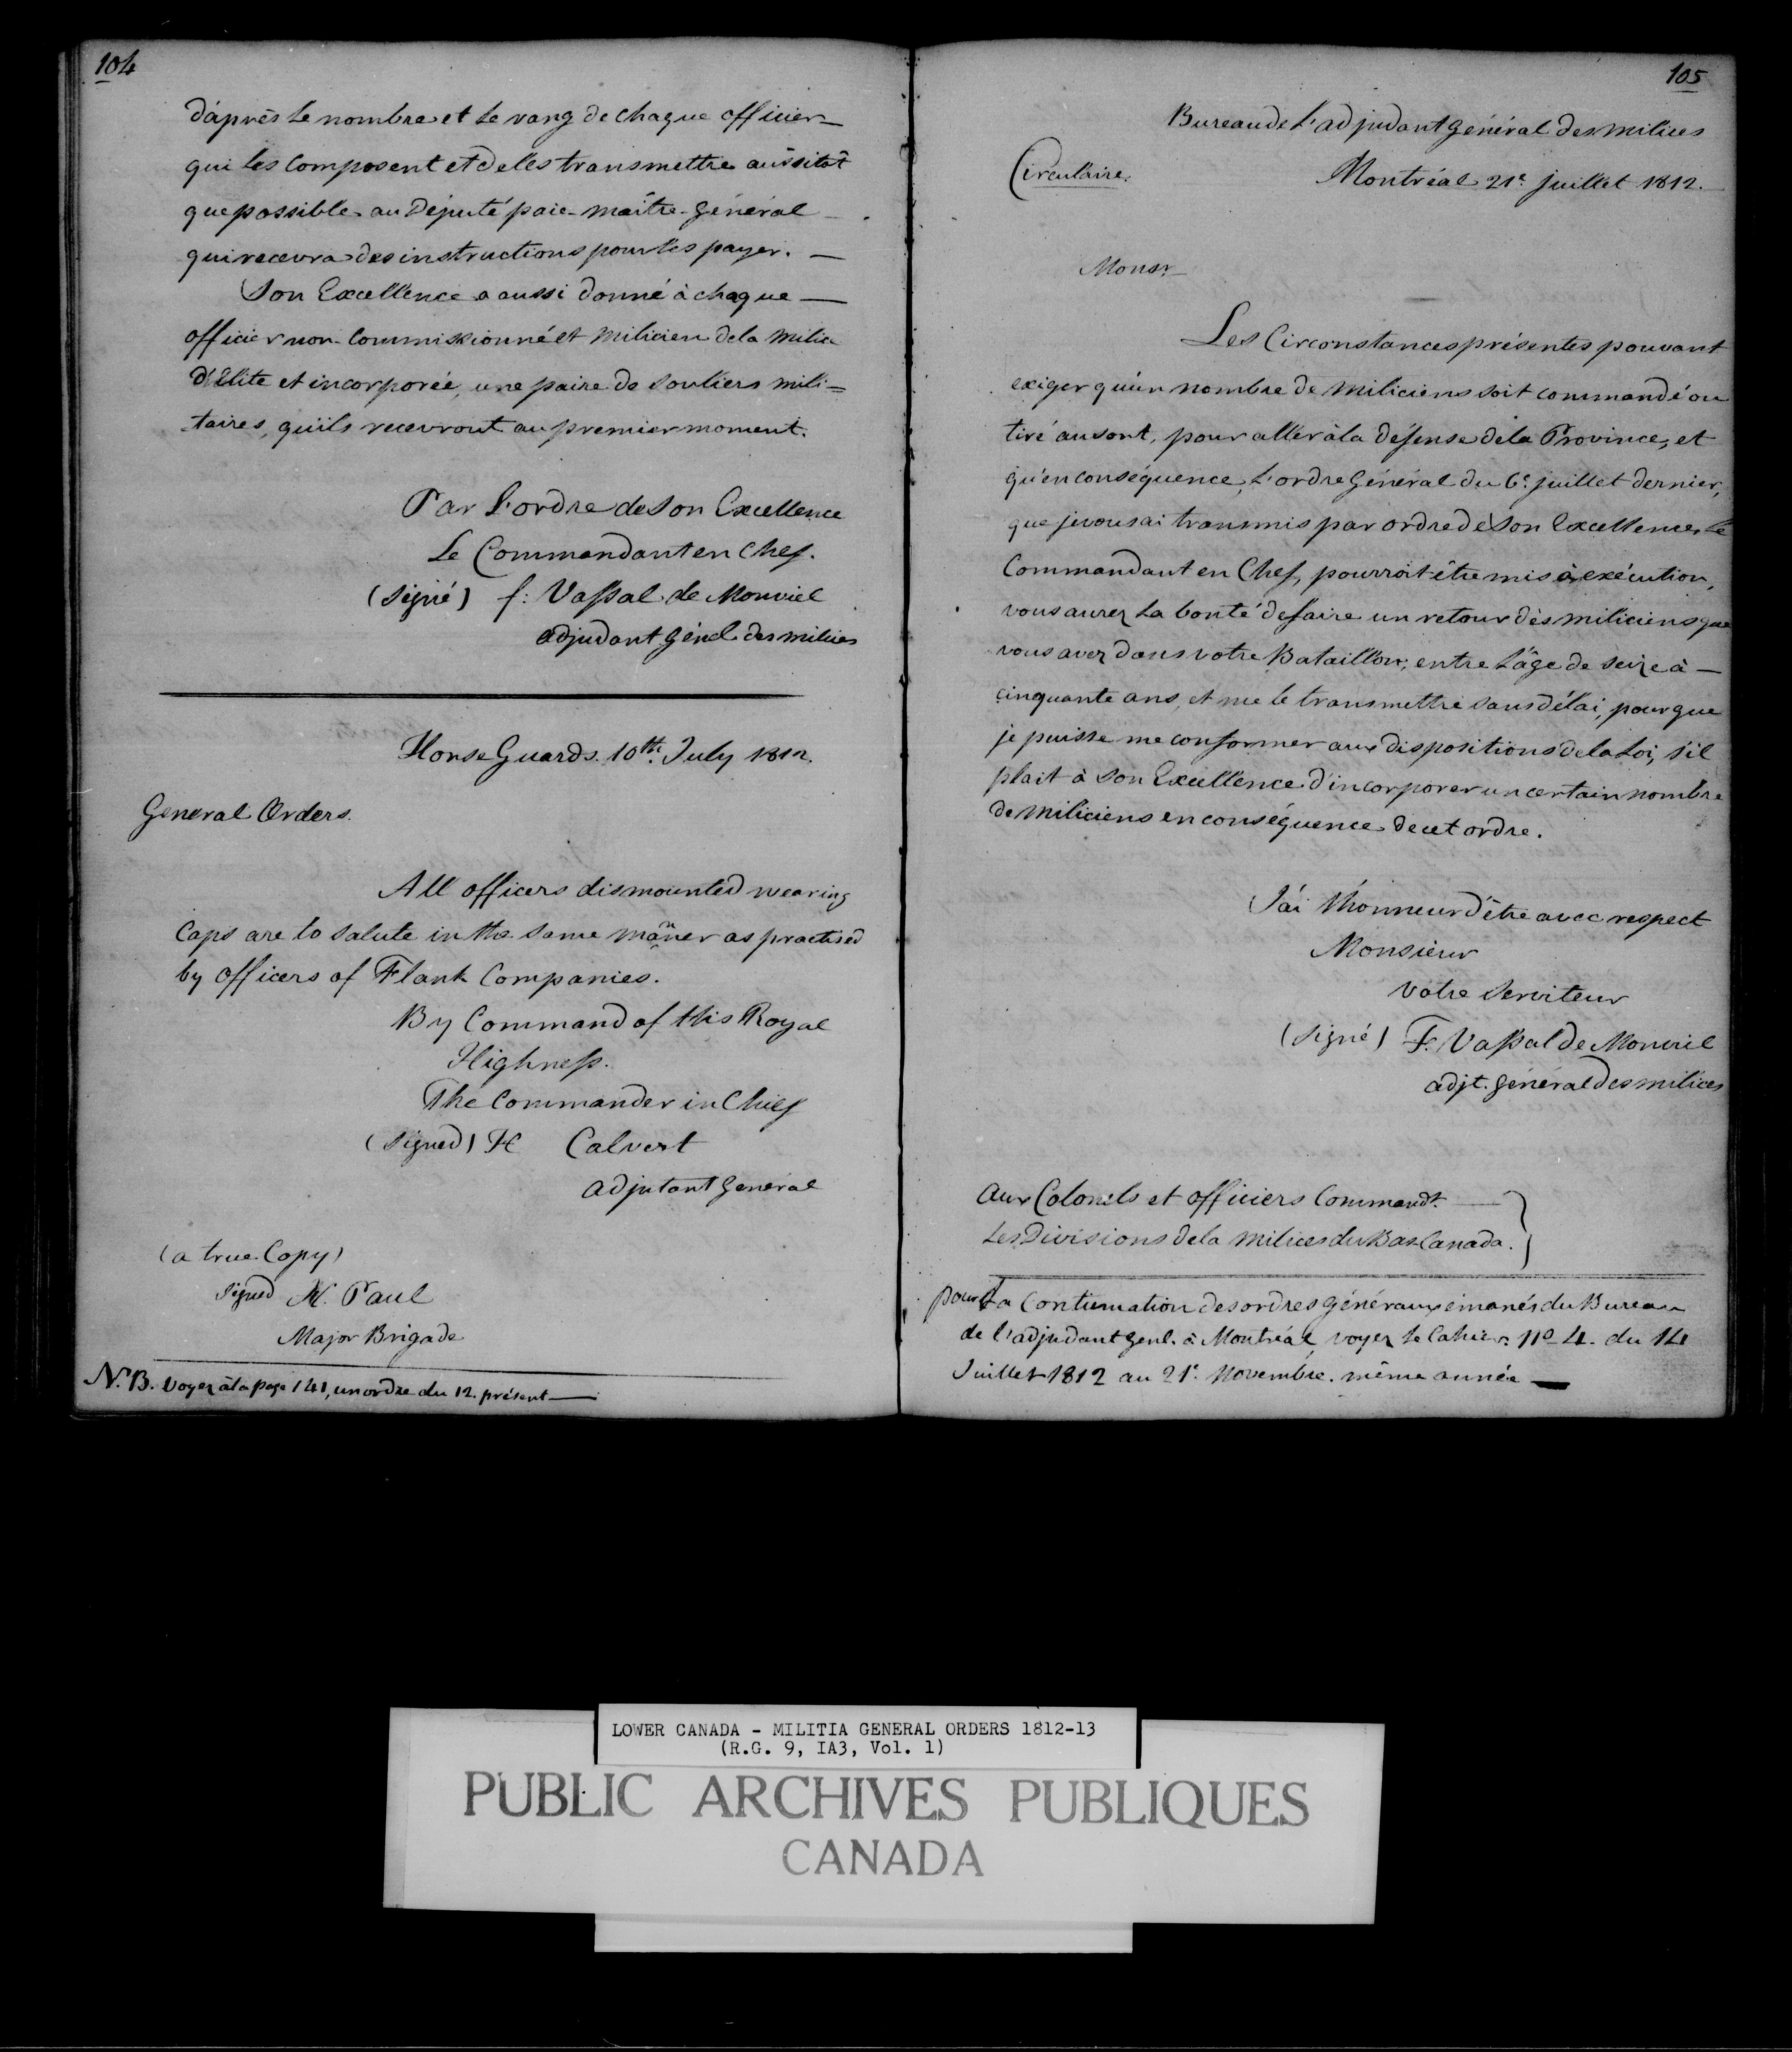 104
d'après le nombre et le rang de chaque officier
qui les composent et de les transmettre aussitôt
que possible au Député paie-maître-Général
qui recevra des instructions pour les payer. —
Son Excellence a aussi donné à chaque —
officier non-Commissionné et Milicien de la Milice
d'Elite et incorporée, une paire de souliers mili=
=taires, qu'ils recevront au premier moment.
Par L'ordre de Son Excellence
Le Commandant en Chef.
(signé) f: Vassal de Monviel
adjudant Génel des milices
Horse Guards. 10th. July 1812.
General Orders.
All officers dismounted wearing
Caps are to salute in the same mañer as practised
by officers of Flank Companies.
By Command of His Royal
Highness.
The Commander in Chief
(signed) H Calvert
adjutant General
(a true Copy)
signed H. Paul
Major Brigade
N.B. Voyez à la page 141, un ordre du 12. présent —
105
Bureau de L'adjudant Général des milices
Circulaire.
Montréal 21e. juillet 1812.
Monsr
Les Circonstances présentes pouvant
exiger qu'un nombre de Miliciens soit commandé ou
tiré au sort, pour aller à la défense de la Province, et
qu'en conséquence, L'ordre Général du 6e. juillet dernier,
que je vous ai transmis par ordre de Son Excellence le
Commandant en Chef, pourroit être mis à exécution,
vous aurez la bonté de faire un retour des miliciens que
vous avez dans votre Bataillon, entre l'âge de seize à —
cinquante ans, et me le transmettre sans délai, pour que
je puisse me conformer aux dispositions de la Loi, s'il
plait à Son Excellence d'incorporer un certain nombre
de Miliciens en conséquence de cet ordre.
J'ai l'honneur d'être avec respect
Monsieur
votre Serviteur
(signé) F. Vassal de Monviel
adjt. général des milices
Aux Colonels et officiers Commandt.
Les Divisions de la Milices du Bas Canada.
pour La Continuation des ordres généraux émanés du Bureau
de l'adjudant Genl. à Montréal, voyez le Cahier. No 4. du 14
Juillet 1812 au 21e. Novembre. même année —
LOWER CANADA - MILITIA GENERAL ORDERS 1812-13
(R.G. 9, IA3, Vol. 1)
PUBLIC ARCHIVES PUBLIQUES
CANADA